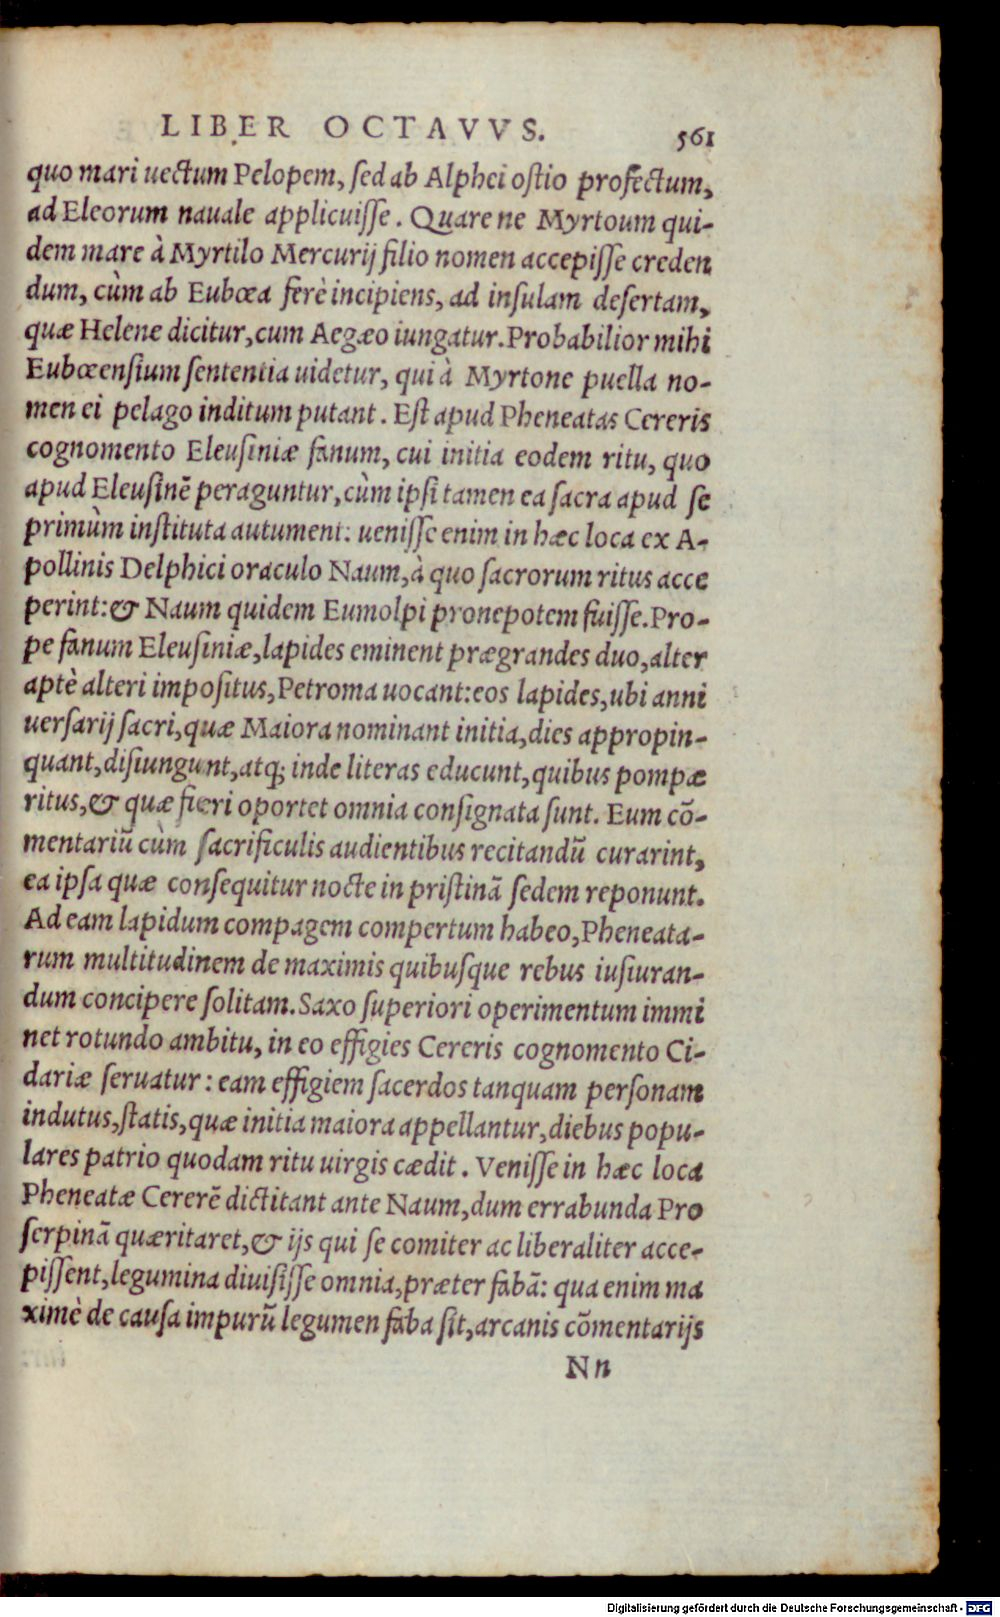 LIBER OCTAVVS. 561
quo mari uectum Pelopem, sed ab Alphei ostio profectum,
ad Eleorum nauale applicuisse. Quare ne Myrtoum qui-
dem mare à Myrtilo Mercurij filio nomen accepisse creden
dum, cùm ab Eubœa ferè incipiens, ad insulam desertam,
quæ Helene dicitur, cum Aegæo iungatur. Probabilior mihi
Eubœensium sententia uidetur, qui à Myrtone puella no-
men ei pelago inditum putant. Est apud Pheneatas Cereris
cognomento Eleusiniæ fanum, cui initia eodem ritu, quo
apud Eleusinẽ peraguntur, cùm ipsi tamen ea sacra apud se
primùm instituta autument: uenisse enim in hæc loca ex A-
pollinis Delphici oraculo Naum, à quo sacrorum ritus acce
perint: & Naum quidem Eumolpi pronepotem fuisse. Pro-
pe fanum Eleusiniæ, lapides eminent prægrandes duo, alter
aptè alteri impositus, Petroma uocant: eos lapides, ubi anni
uersarij sacri, quæ Maiora nominant initia, dies appropin-
quant, disiungunt, atq; inde literas educunt, quibus pompæ
ritus, & quæ fieri oportet omnia consignata sunt. Eum cõ-
mentariũ cùm sacrificulis audientibus recitandũ curarint,
ea ipsa quæ consequitur nocte in pristinã sedem reponunt.
Ad eam lapidum compagem compertum habeo, Pheneata-
rum multitudinem de maximis quibusque rebus iusiuran-
dum concipere solitam. Saxo superiori operimentum immi
net rotundo ambitu, in eo effigies Cereris cognomento Ci-
dariæ seruatur: eam effigiem sacerdos tanquam personam
indutus, statis, quæ initia maiora appellantur, diebus popu-
lares patrio quodam ritu uirgis cædit. Venisse in hæc loca
Pheneatæ Cererẽ dictitant ante Naum, dum errabunda Pro
serpinã quæritaret, & ijs qui se comiter ac liberaliter acce-
pissent, legumina diuisisse omnia, præter fabã: qua enim ma
ximè de causa impurũ legumen faba sit, arcanis cõmentarijs
Nn
Digitalisierung gefördert durch die Deutsche Forschungsgemeinschaft - DFG